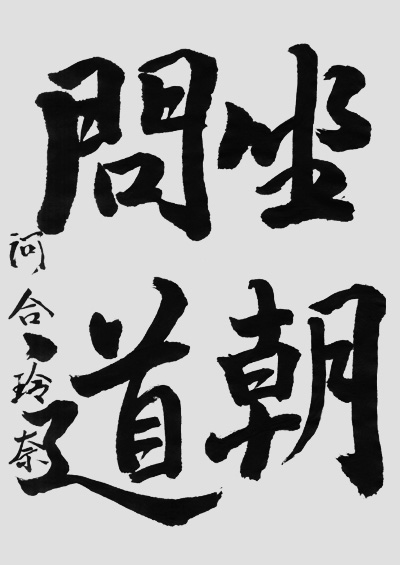 坐朝
問道
河合玲奈